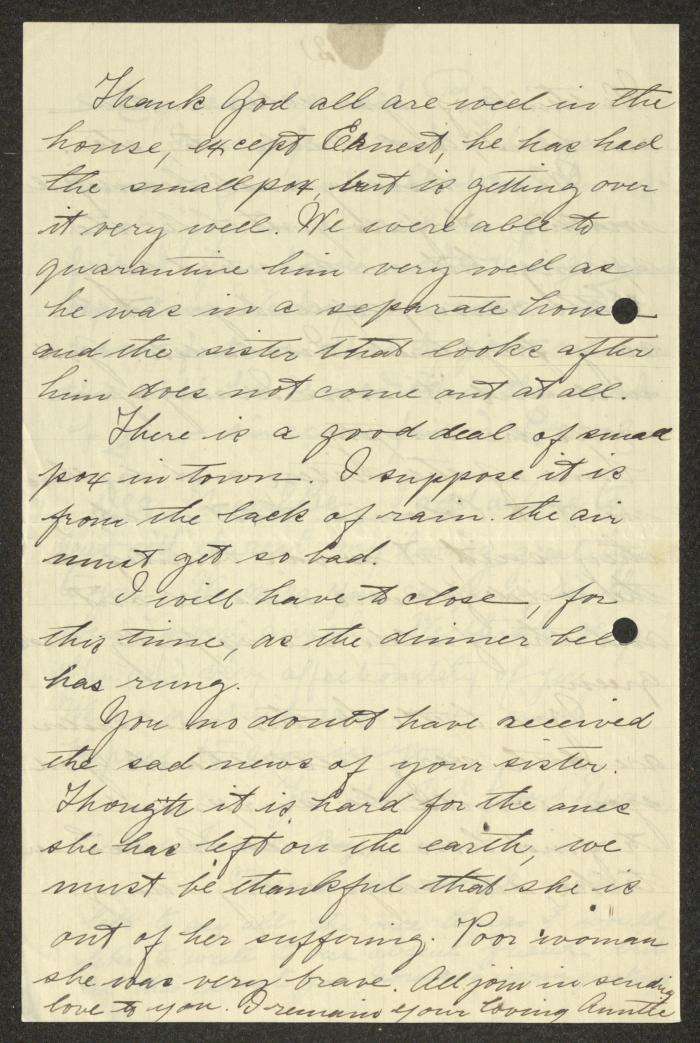 Thank God all are well in the
house, except Ernest, he has had
the smallpox, but is getting over
it very well. We were able to
quarantine him very well as
he was in a separate house
and the sister that looks after
him does not come out at all.
There is a good deal of small
pox in town. I suppose it is
from the lack of rain. the air
must get so bad.
I will have to close, for
this time, as the dinner bell
has rung.
You no doubt have received
the sad news of your sister.
Though it is hard for the ones
she has left on the earth, we
must be thankful that she is
out of her suffering. Poor woman
she was very brave. All join in sending
love to you. I remain your loving Auntie